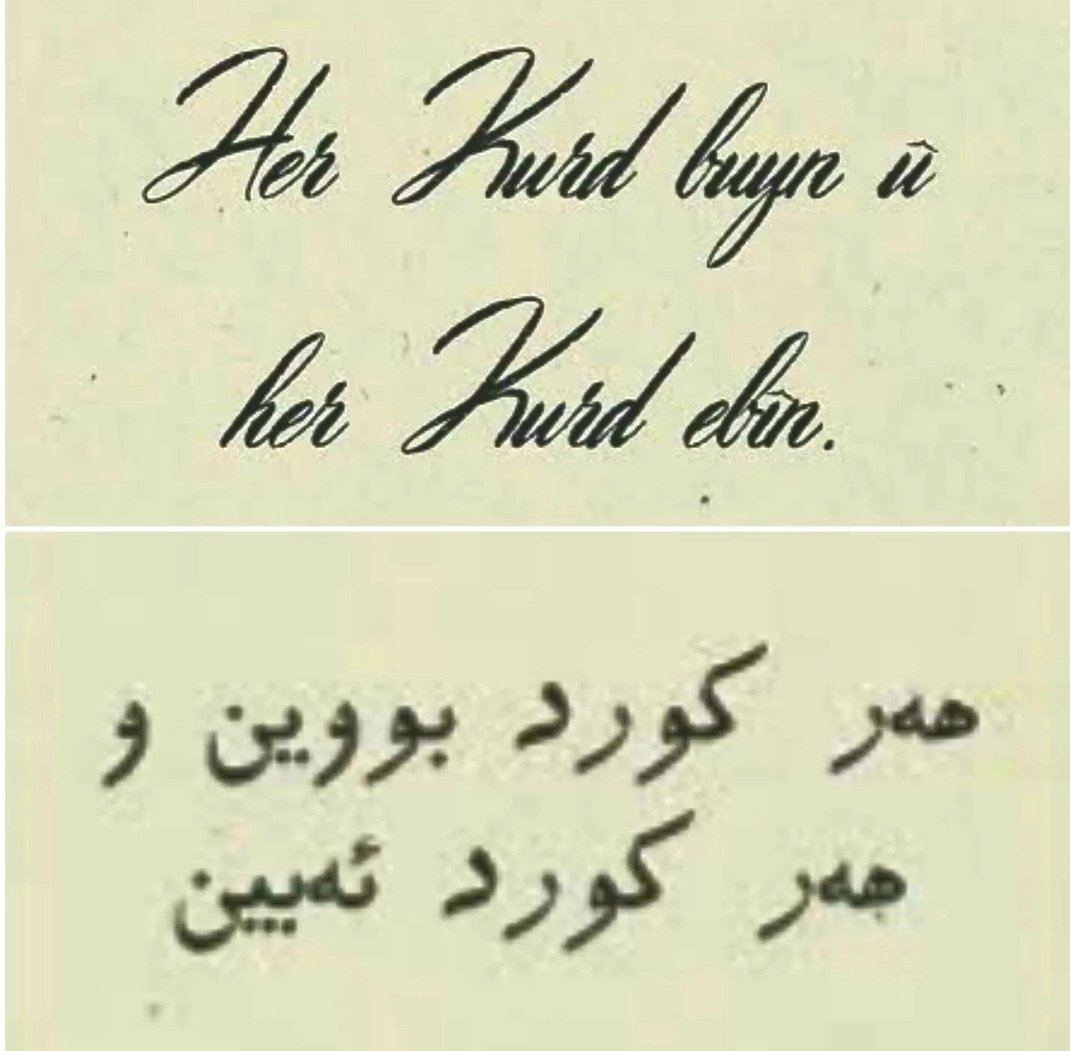 Her Kurd buyn û
her Kurd ebîn.
هەر کورد بووین و
هەر کورد ئەبین